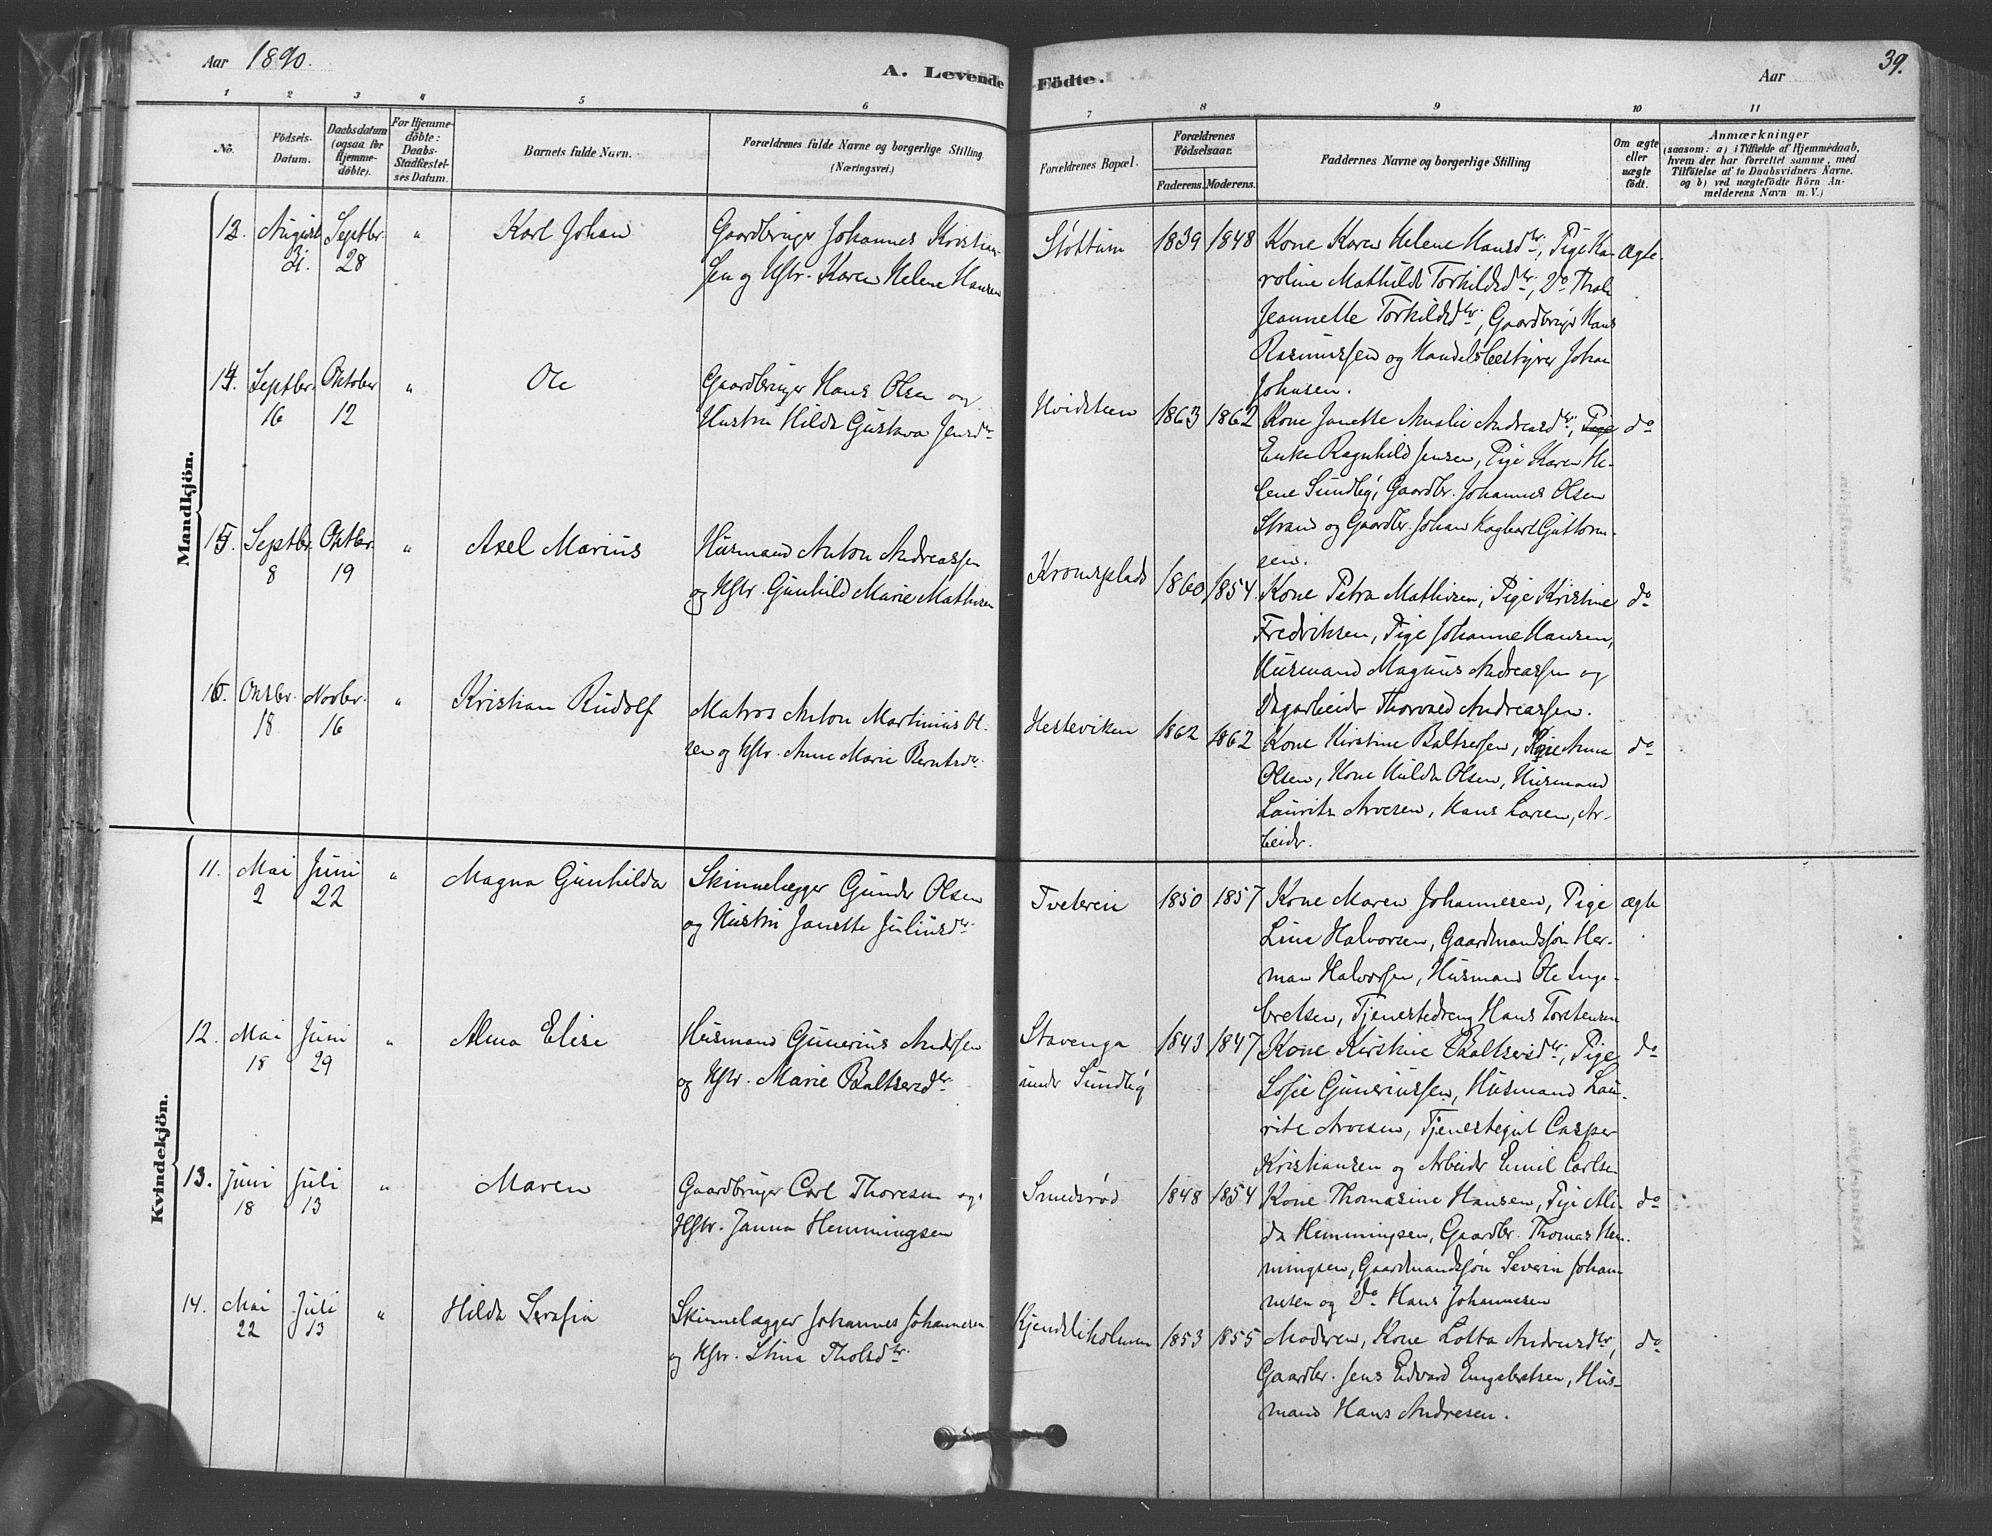 Aar 1890.
A. Levende Födte.
Aar
39.
1 2 3 4 5 6 7 8 9 10 11
No.
Födsels-
Datum.
Daabsdatum
(ogsaa for
Hjemme-
döbte).
For Hjemme-
döbte:
Daabs-
Stadfæstel-
ses Datum.
Barnets fulde Navn.
Forældrenes fulde Navne og borgerlige Stilling
(Næringsvei.)
Forældrenes Bopæl.
Forældrenes
Födselsaar.
Faderens.
Moderens.
Faddernes Navne og borgerlige Stilling
Om ægte
eller
uægte
födt.
Anmærkninger
(saasom: a) i Tilfælde af Hjemmedaab,
hvem der har forrettet samme, med
Tilföielse af to Daabsvidners Navne.
og b) ved uægtefödte Börn An-
melderens Navn m. V.)
Mandkjön.
13. August 31. Septbr. 28 " Karl Johan
Gaardbruger Johannes Kristian-
sen og Hstr. Karen Helene Hansen
Støttum 1839 1848
Kone Karen Helene Hansdtr, Pige Ka-
roline Mathilde Torkildsdtr, Do Thale
Jeannette Torkildsdtr, Gaardbruger Hans
Rasmussen og Handelsbestyrer Johan
Johnsen.
Ægte
14. Septbr. 16 Oktober 12 " Ole
Gaardbruger Hans Olsen og
Hustru Hilda Gustava Jensdtr
Hvidsteen 1863 1862
Kone Janette Amalie Andreasdtr, Pige
Enke Ragnhild Jensen, Pige Karen He-
lene Sundby, Gaardbr. Johannes Olsen
Strand og Gaardbr. Johan Kaghart Guttorm-
sen.
do
15. Septbr. 8 Oktbr. 19 " Axel Marius
Husmand Anton Andreassen
og Hstr. Gunhild Marie Mathisen
Kronesplads 1860 1854
Kone Petra Mathisen, Pige Kristine
Fredriksen, Pige Johanne Hansen,
Husmand Magnus Andreassen og
Dagarbeider Thorvald Andreassen.
do
16. Oktbr. 18 Novbr. 16 " Kristian Rudolf
Matros Anton Martinius Ol-
sen og Hstr. Anne Marie Berntsdtr.
Hesteviken 1862 1862
Kone Kirstine Baltsersen, Pige Anna
Olsen, Kone Hulda Olsen, Husmand
Laurits Arvesen, Hans Larsen, Ar-
beider.
do
Kvindekjön.
11. Mai 2 Juni 22 " Magna Gunhilda
Skinnelægger Gunder Olsen
og Hustru Janette Juliusdtr
Tveterein 1850 1857
Kone Maren Johannesen, Pige
Lina Halvorsen, Gaardmandssøn Her-
man Halvorsen, Husmand Ole Inge-
bretsen, Tjenestedreng Hans Torstensen
ægte
12. Mai 18 Juni 29 " Alma Elise
Husmand Gunerius Andersen
og Hstr. Marie Baltsersdtr
Stavenga
under Sundby
1843 1847
Kone Kirstine Baltsersdtr, Pige
Sofie Gunerussen, Husmand Lau-
rits Arvesen, Tjenestegut Casper
Kristiansen og Arbeider Emil Carlsen
do
13. Juni 18 Juli 13 " Maren
Gaardbruger Carl Thoresen og
Hstr. Janna Hemmingsen
Smedsrød 1848 1854
Kone Thomasine Hansen, Pige Ali-
da Hemmingsen, Gaardbr. Thomas Hem-
mingsen, Gaardmandssøn Severin Johan-
nesen og Do. Hans Johannesen
do
14. Mai 22 Juli 13 " Hilda Serafia
Skinnelægger Johannes Johannesen
og Hstr. Stina Tholsdtr
Kjendsliholmen 1853 1855
Moderen, Kone Lotta Andreasdtr,
Gaardbr. Jens Edvard Engebretsen, Hus-
mand Hans Andresen.
do